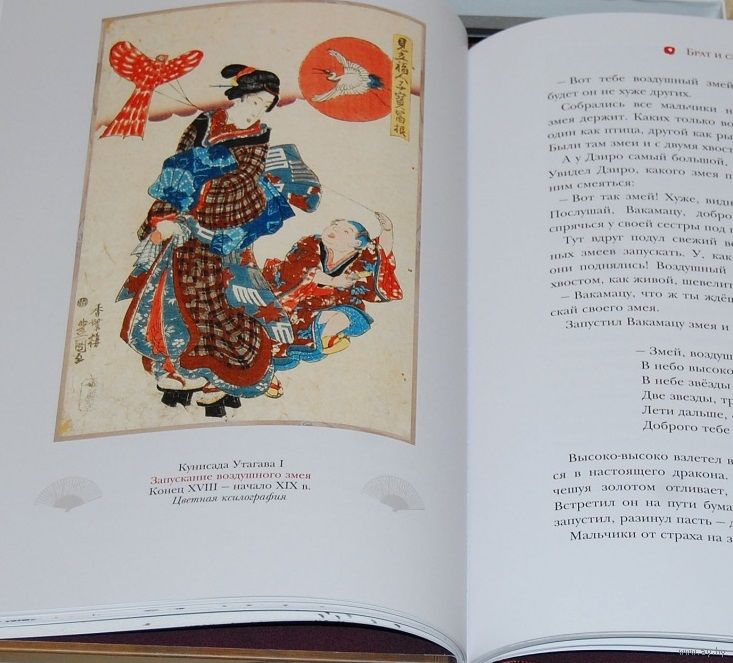 見立福人子寳冨根
香蝶樓
豊國画
Кунисада Утагава I
Запускание воздушного змея
Конец XVIII — начало XIX в.
Цветная ксилография
Брат и с
— Вот тебе воздушный змей
будет он не хуже других.
Собрались все мальчики н
змея держит. Каких только во
один как птица, другой как ры
Были там змеи и с двумя хвост
А у Дзиро самый большой,
Увидел Дзиро, какого змея п
ним смеяться:
— Вот так змей! Хуже, видн
Послушай, Вакамацу, добро
спрячься у своей сестры под
Тут вдруг подул свежий в
ных змеев запускать. У, как
они поднялись! Воздушный
хвостом, как живой, шевелит
— Вакамацу, что ж ты ждёш
скай своего змея.
Запустил Вакамацу змея и
— Змей, воздуш
В небо высоко
В небе звёзды
Две звезды, тр
Лети дальше,
Доброго тебе
Высоко-высоко взлетел в
ся в настоящего дракона.
чешуя золотом отливает,
Встретил он на пути бума
запустил, разинул пасть — д
Мальчики от страха на з